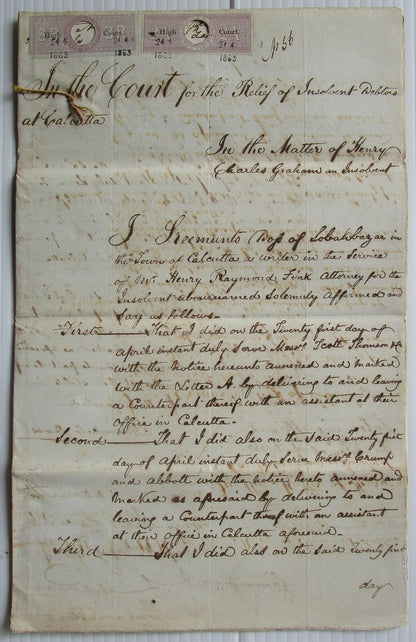 High Court
24 4
1863
High Court
24 4
1863
No 56
In the Court for the Relief of Insolvent Debtors
at Calcutta
In the Matter of Henry
Charles Graham an Insolvent
I Sreemunto Doss of Sobahbazar in
the Town of Calcutta a writer in the Service
of Mr. Henry Raymond Fink Attorney for the
Insolvent abovenamed Solemnly Affirmed and
Say as follows-
First That I did on the Twenty first day of
April instant duly Serve Messrs. Scott Thomson & Co
with the Notice hereunto annexed and Marked
with the Letter A by delivering to and leaving
a Counterpart thereof with an assistant at their
Office in Calcutta.
Second That I did also on the said Twenty first
day of April instant duly Serve Messrs. Crump
and Abbott with the Notice hereto annexed and
Marked as aforesaid by delivering to and
leaving a Counterpart thereof with an assistant
at their office in Calcutta aforesaid.
Third That I did also on the said Twenty first
day